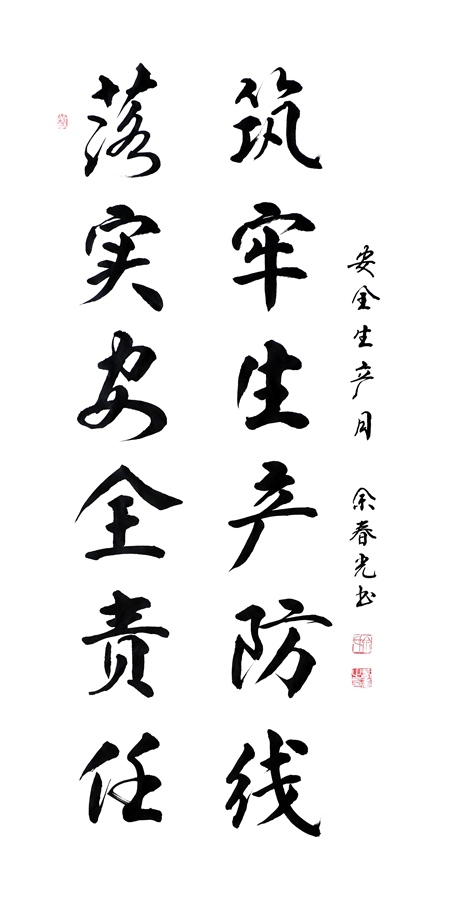 落实安全责任
筑牢生产防线
安全生产月 余春光书